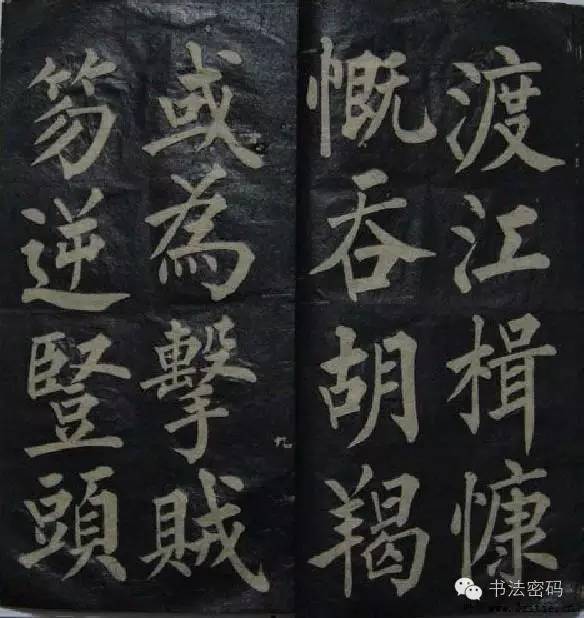 渡江楫慷
慨吞胡羯
或為擊賊
笏逆豎頭
九
书法密码